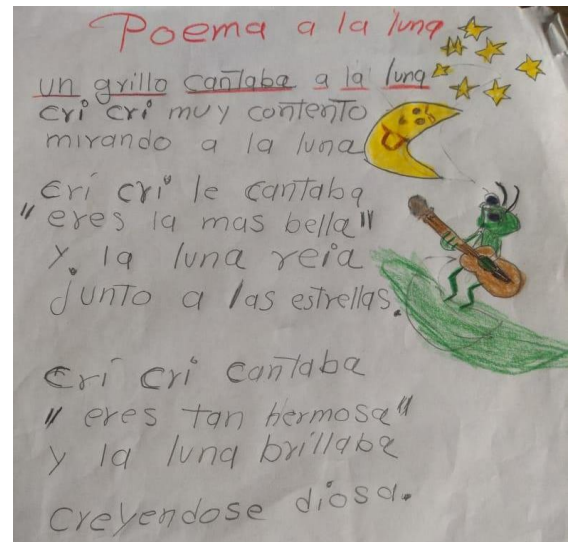 Poema a la luna
un grillo cantaba a la luna
cri cri muy contento
mirando a la luna
cri cri le cantaba
"eres la mas bella"
y la luna reia
junto a las estrellas.
Cri cri cantaba
"eres tan hermosa"
y la luna brillaba
creyendose diosa.